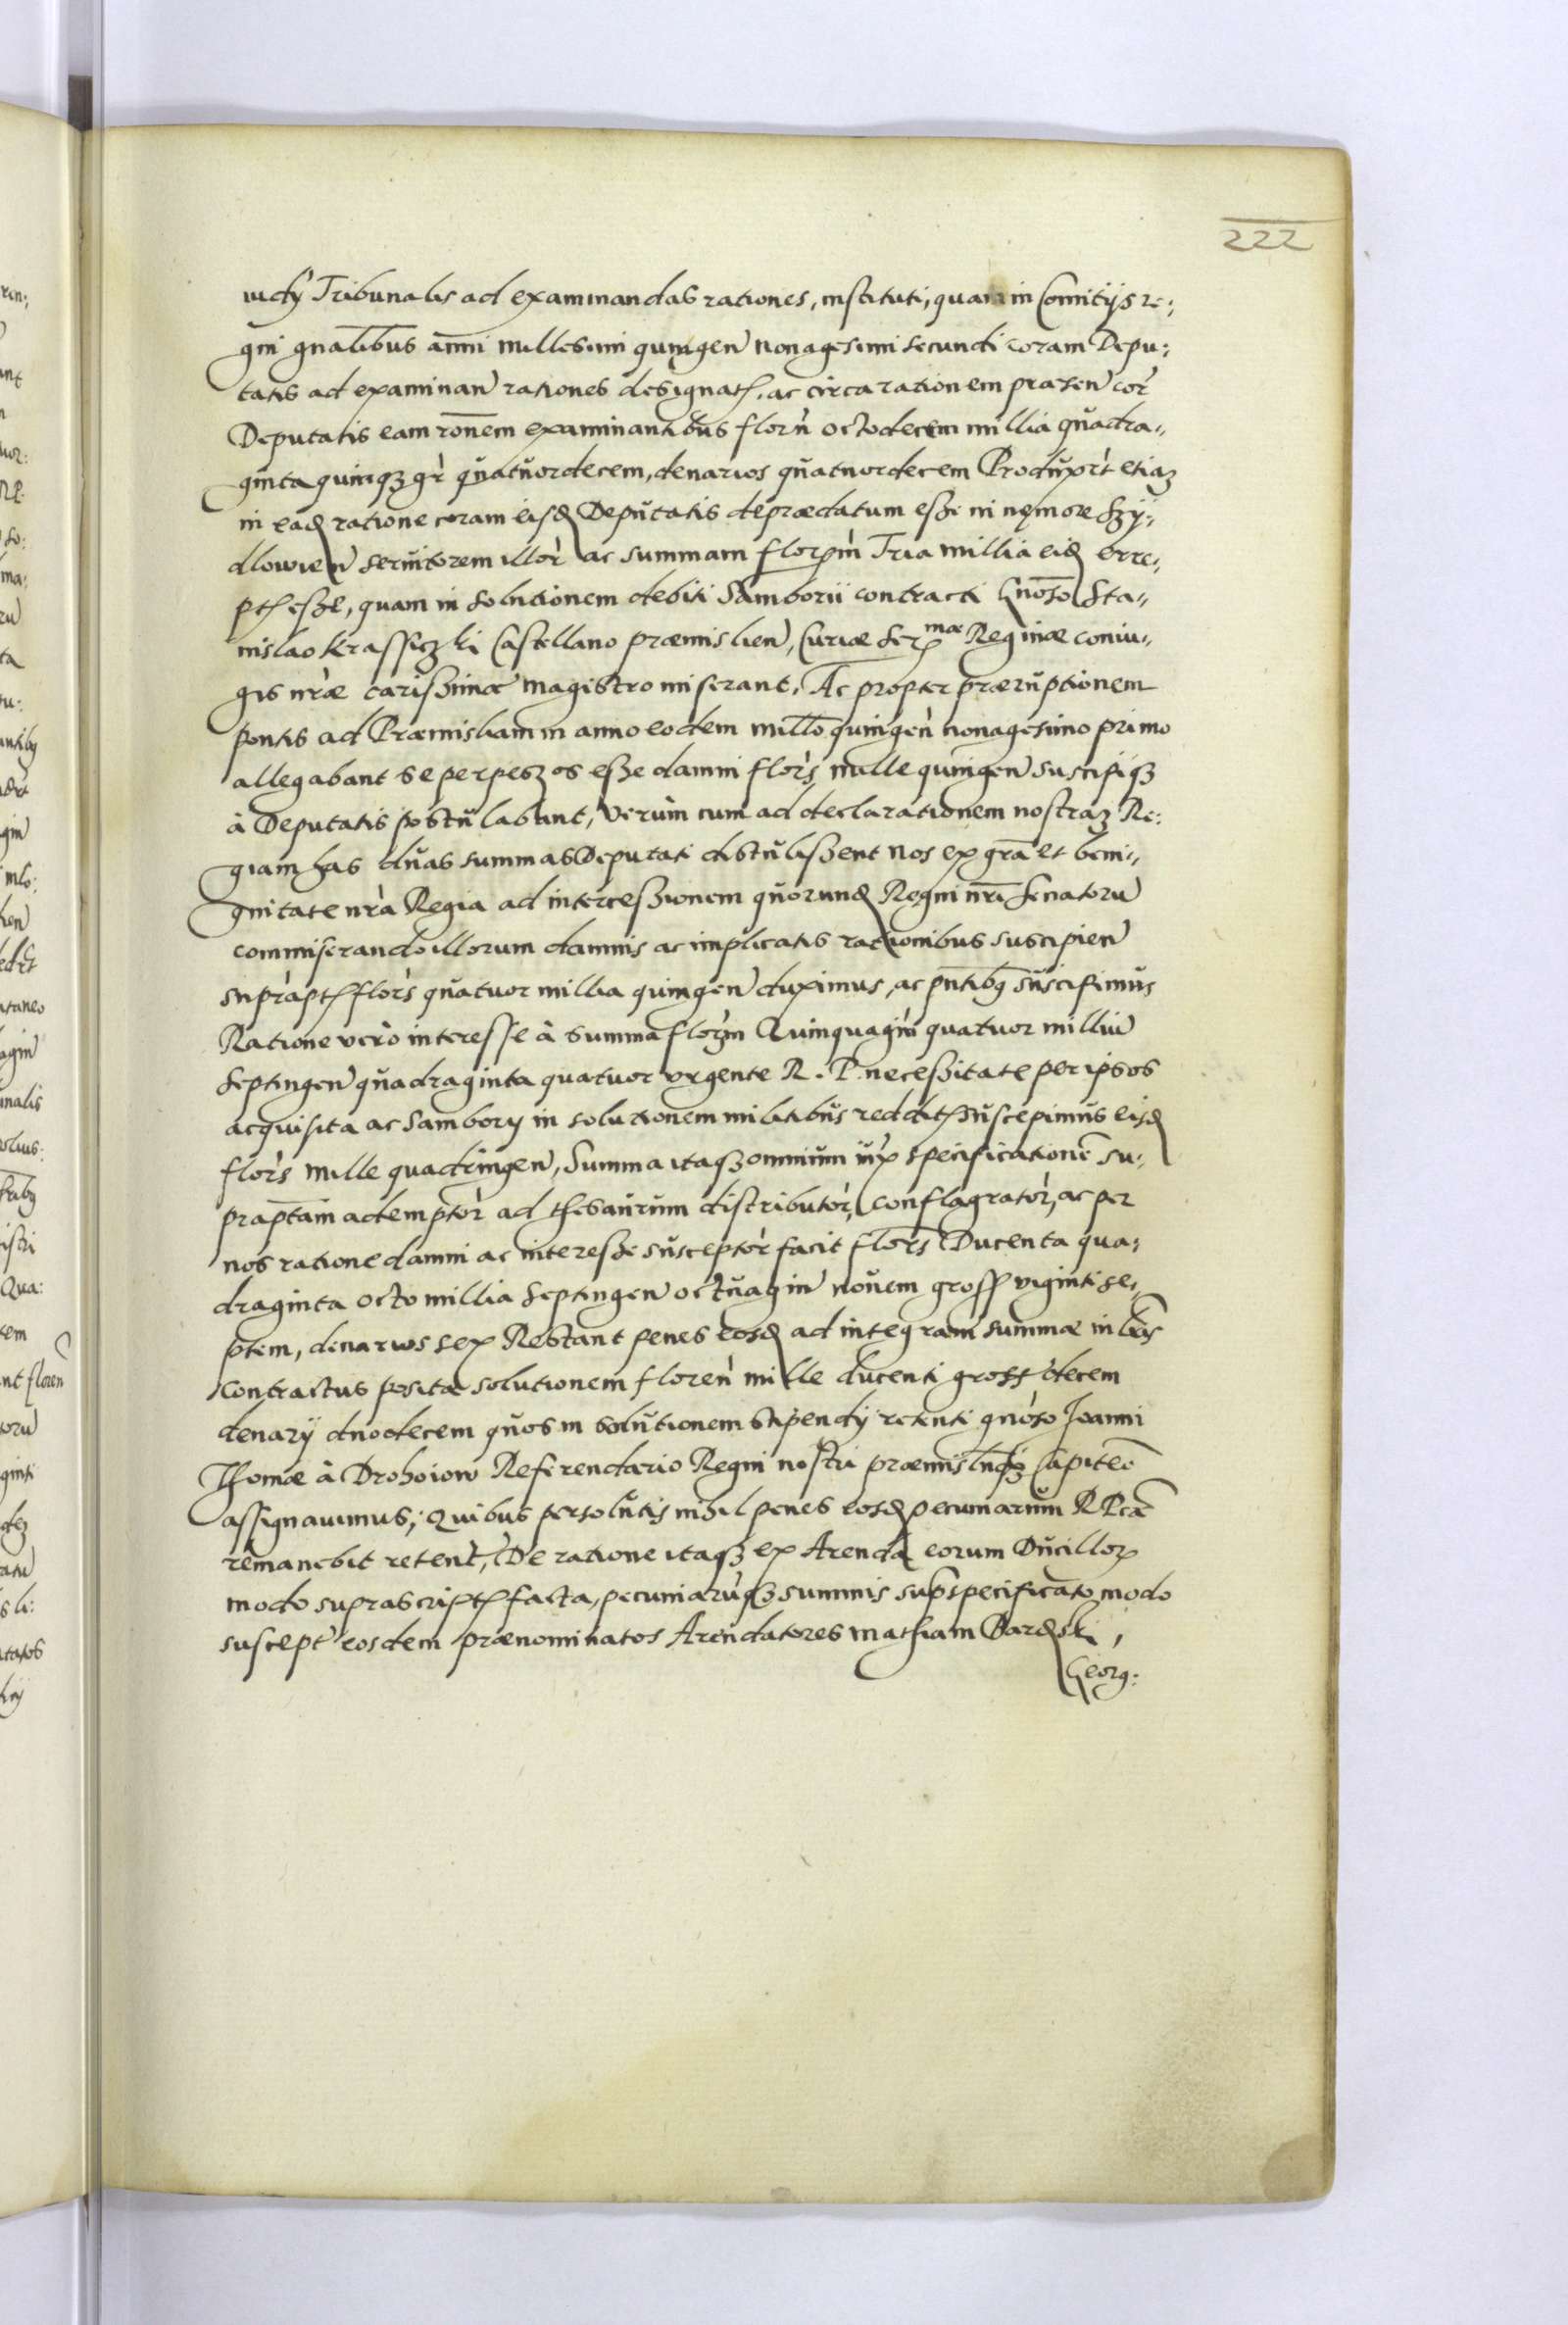 222
iudicÿ Tribunalis ad examinandas rationes, instituti, quam in Comitijs re:
gni gnalibus anni millesimi quingen nonagesimi secundi coram Depu:
tatis ad examinan rationes designat, ac circa rationem praesen cor
Deputatis eam ronem examinantibus florn octodecem millia quadra,,
ginta quinqz gr quatuordecem, denarios quatuordecem Produxert etiaz
in ead ratione coram eisd Deputatis depraedatum esse in nemore Szÿ:
dlowien seruitorem illor ac summam florem Tria millia eid erre:
pt esse, quam in solutionem debiti Samborii contracti Gnoso Sta,,
nislao Krassiczki Castellano praemislien, Curiae Ser mae Reginae coniu,,
gis nrae carissimae magistro miserant, Ac propter praeruptionem
pontis ad Praemisliam in anno eodem millo quingen nonagesimo primo
allegabant se perpeszos esse damni flors mille quingen suscipiqz
à Deputatis postulabant, Verum cum ad declarationem nostraz Re:
giam has duas summas Deputati distulissent nos ex gra et beni,,
gnitate nra Regia ad intercessionem quorund Regni nri Senatoru
commiserando illorum damnis ac implicatis rationibus suscipien
suprapt flors quatuor millia quingen duximus, ac pntibg suscipimus
Ratione vero interesse à summa florem Quinquagin quatuor milliu
septingen quadraginta quatuor vrgente R. P. necessitate per ipsos
acquisita ac Sambory in solutionem militibus reddit suscepimus eisd
flors mille quadringen, Summa itaqz omnium iux specificatione su:
praptam ademptor ad thesaurum distributor, conflagrator, ac per
nos ratione damni ac interesse susceptor facit flors Ducenta qua:
draginta octo millia septingen octuagin nouem gross viginti se:
ptem, denarios sex Restant penes eosd ad integram summae in lris
contractus positae solutionem floren mille ducenti gross decem
denarÿ duodecem quos in solutionem stipendÿ retenti gnoso Joanni
Thomae à Drohoiow Referendario Regni nostri praemislnsqz Capiteo
assignauimus; Quibus persolutis nihil penes eosd pecuniarum R Pcae
remanebit retent, De ratione itaqz ex Arenda eorum Ducillor
modo suprascript facta, pecuniaruqz summis supspecificato modo
suscept eosdem praenominatos Arendatores mathiam Bardski,
Georg: